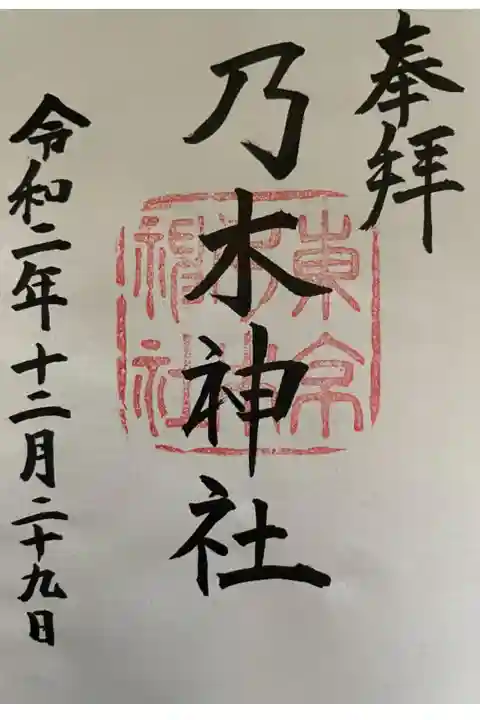 奉拝
乃木神社
東京
乃木
神社
令和二年十二月二十九日